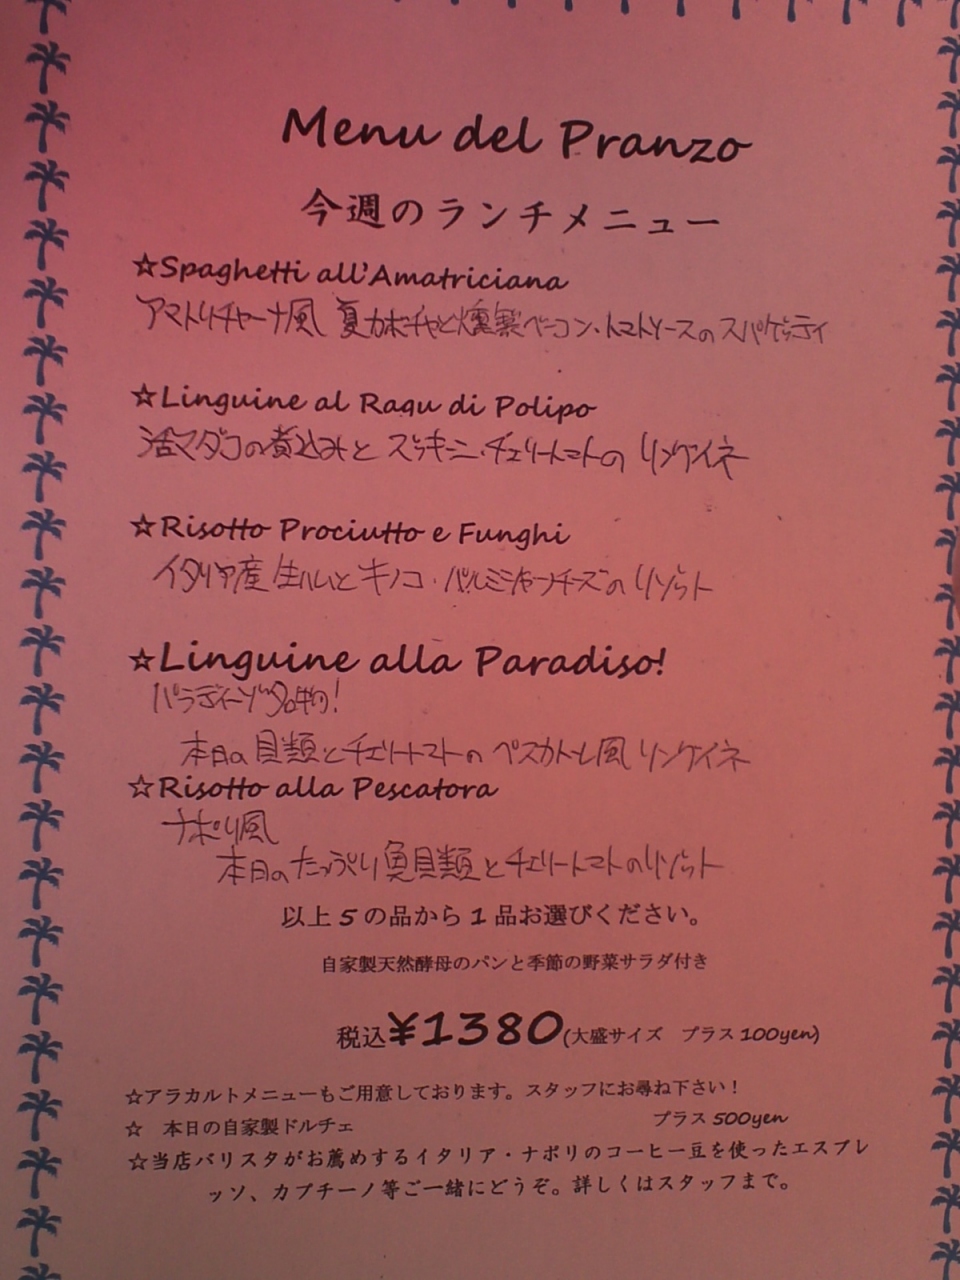 Menu del Pranzo
今週のランチメニュー
☆Spaghetti all'Amatriciana
アマトリチャーナ風 夏カボチャと燻製ベーコン・トマトソースのスパゲッティ
☆Linguine al Ragu di Polipo
活マダコの煮込みと ズッキーニ・チェリートマトの リングイネ
☆Risotto Prociutto e Funghi
イタリア産 生ハムと キノコ・パルミジャーノチーズの リゾット
☆Linguine alla Paradiso!
パラディーゾ名物!
本日の 貝類とチェリートマトの ペスカトーレ風 リングイネ
☆Risotto alla Pescatora
ナポリ風
本日の たっぷり 魚貝類と チェリートマトのリゾット
以上 5 の品から 1 品お選びください。
自家製天然酵母のパンと季節の野菜サラダ付き
税込¥1380(大盛サイズ プラス 100yen)
☆アラカルトメニューもご用意しております。スタッフにお尋ね下さい!
☆ 本日の自家製ドルチェ プラス 500yen
☆当店バリスタがお薦めするイタリア・ナポリのコーヒー豆を使ったエスプレ
ッソ、カプチーノ等ご一緒にどうぞ。詳しくはスタッフまで。